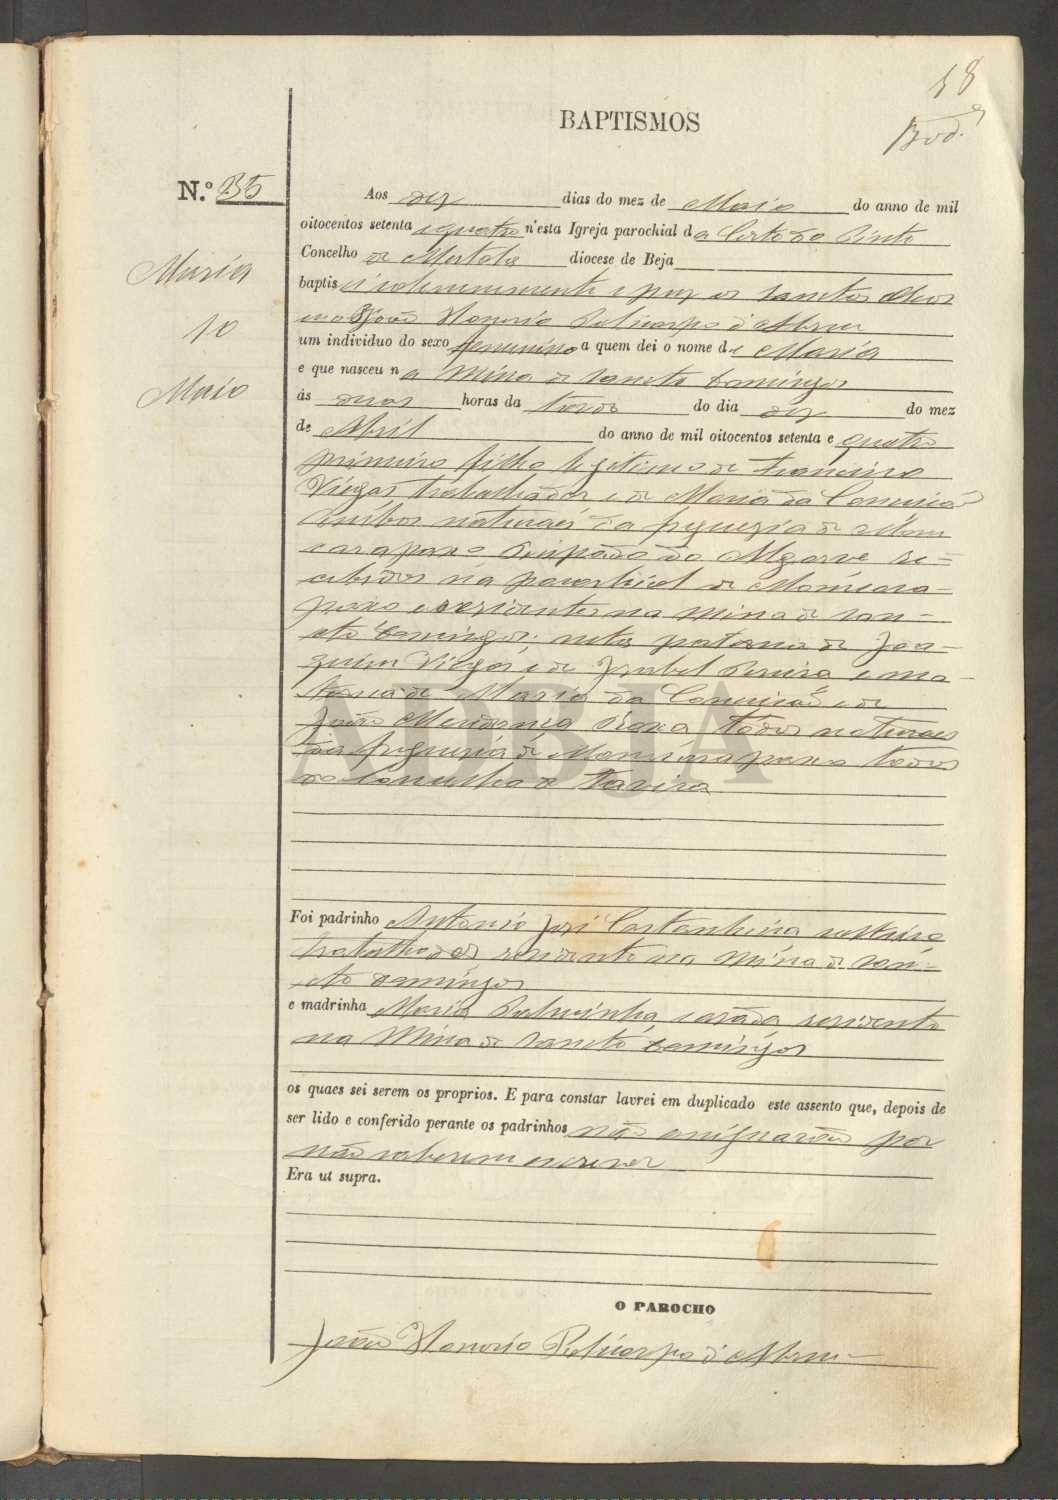 18
BAPTISMOS
N.º 35
Maria
10
Maio
Aos dez dias do mez de Maio do anno de mil
oitocentos setenta e quatro n'esta Igreja parochial da Corte do Pinto
Concelho de Mertola diocese de Beja
baptisei solemnemente e puz os sanctos oleos
João Honorio Policarpo d'Abreu
um individuo do sexo femenino a quem dei o nome de Maria
e que nasceu na Mina de sancto domingos
ás duas horas da tarde do dia dez do mez
de Abril do anno de mil oitocentos setenta e quatro
primeiro filho legitimo de Francisco
Viegas trabalhador e de Maria da Conceicão
ambos naturaes da freguezia de Mon
carapaxo Bispado do Algarve re-
cebidos na parochial de Moncara-
paxo e residentes na mina de san-
cto domingos; neta paterna de Joa-
quim Viegas e de Izabel Pereira e ma-
terna de Maria da Conceicão e de
João Mendonça Roxa todos naturaes
da freguezia de Moncarapaxo todos
do Concelho de Tavira
Foi padrinho Antonio José Castanhina solteiro
trabalhador residente na Mina de san-
cto domingos
e madrinha Maria casada residente
na Mina de sancto domingos
os quaes sei serem os proprios. E para constar lavrei em duplicado este assento que, depois de
ser lido e conferido perante os padrinhos não assignarão por
não saberem escrever
Era ut supra.
O PAROCHO
João Honorio Policarpo d'Abreu
ADBJA